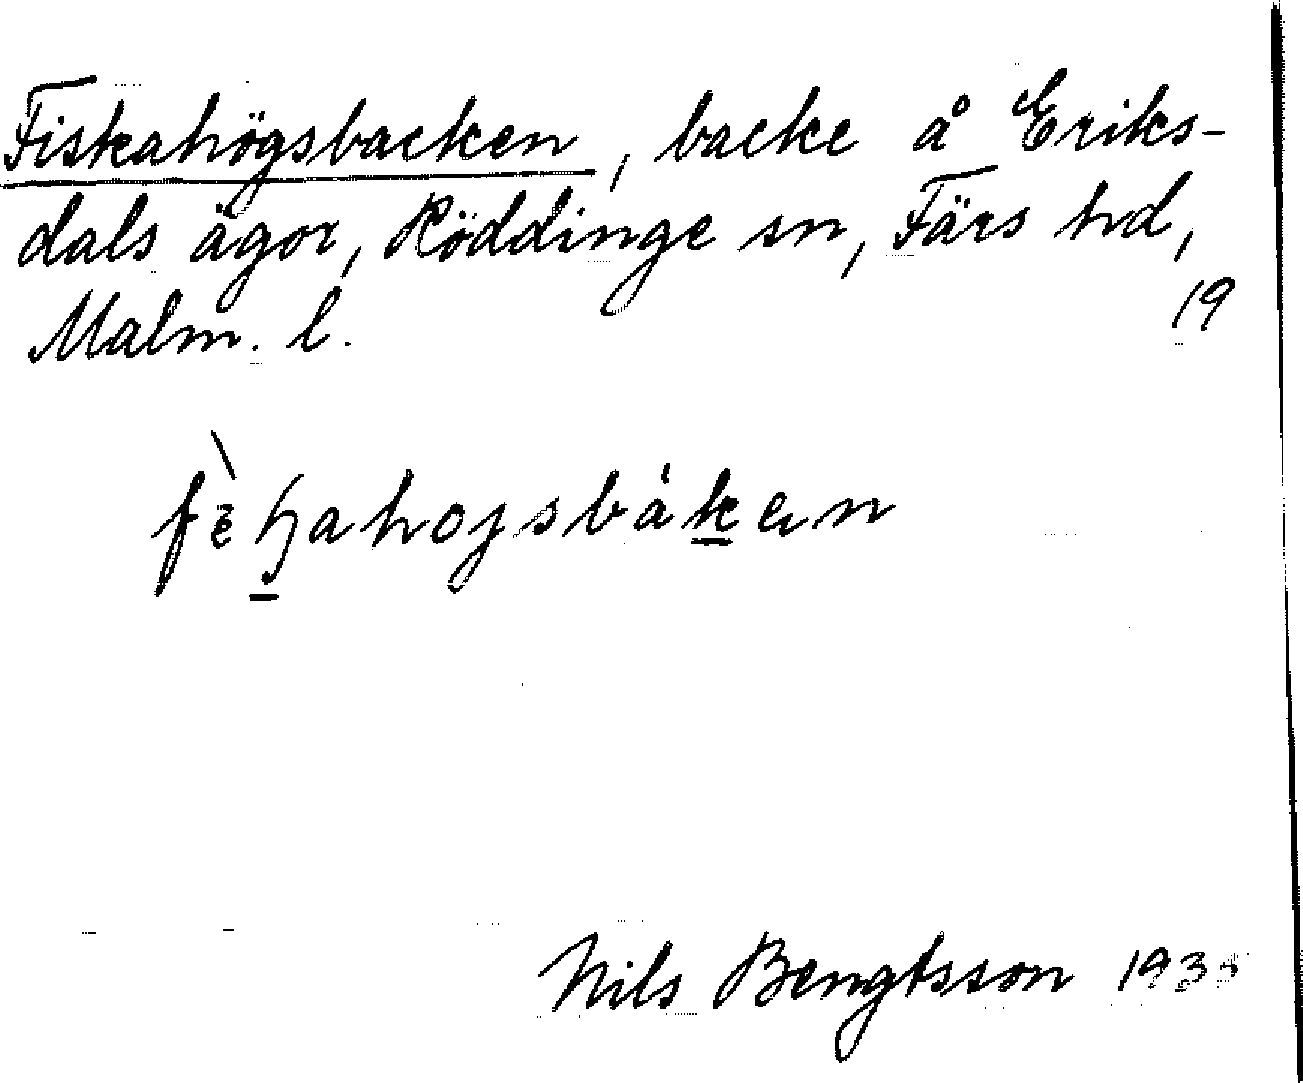 Fiskahögsbacken, backe å Eriks-
dals ägor, Röddinge sn, Färs hd,
Malm. l. 19
Nils Bengtsson 1935